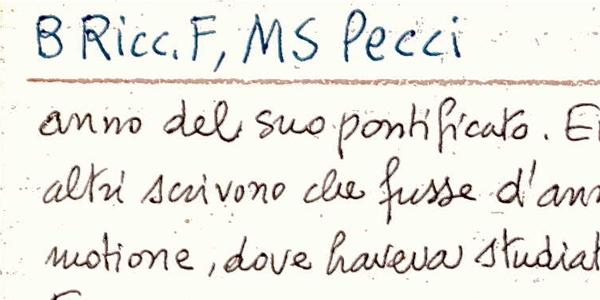 B Ricc. F, MS Pecci
anno del suo pontificato.
altri scrivono che fusse
motione, dove haveva